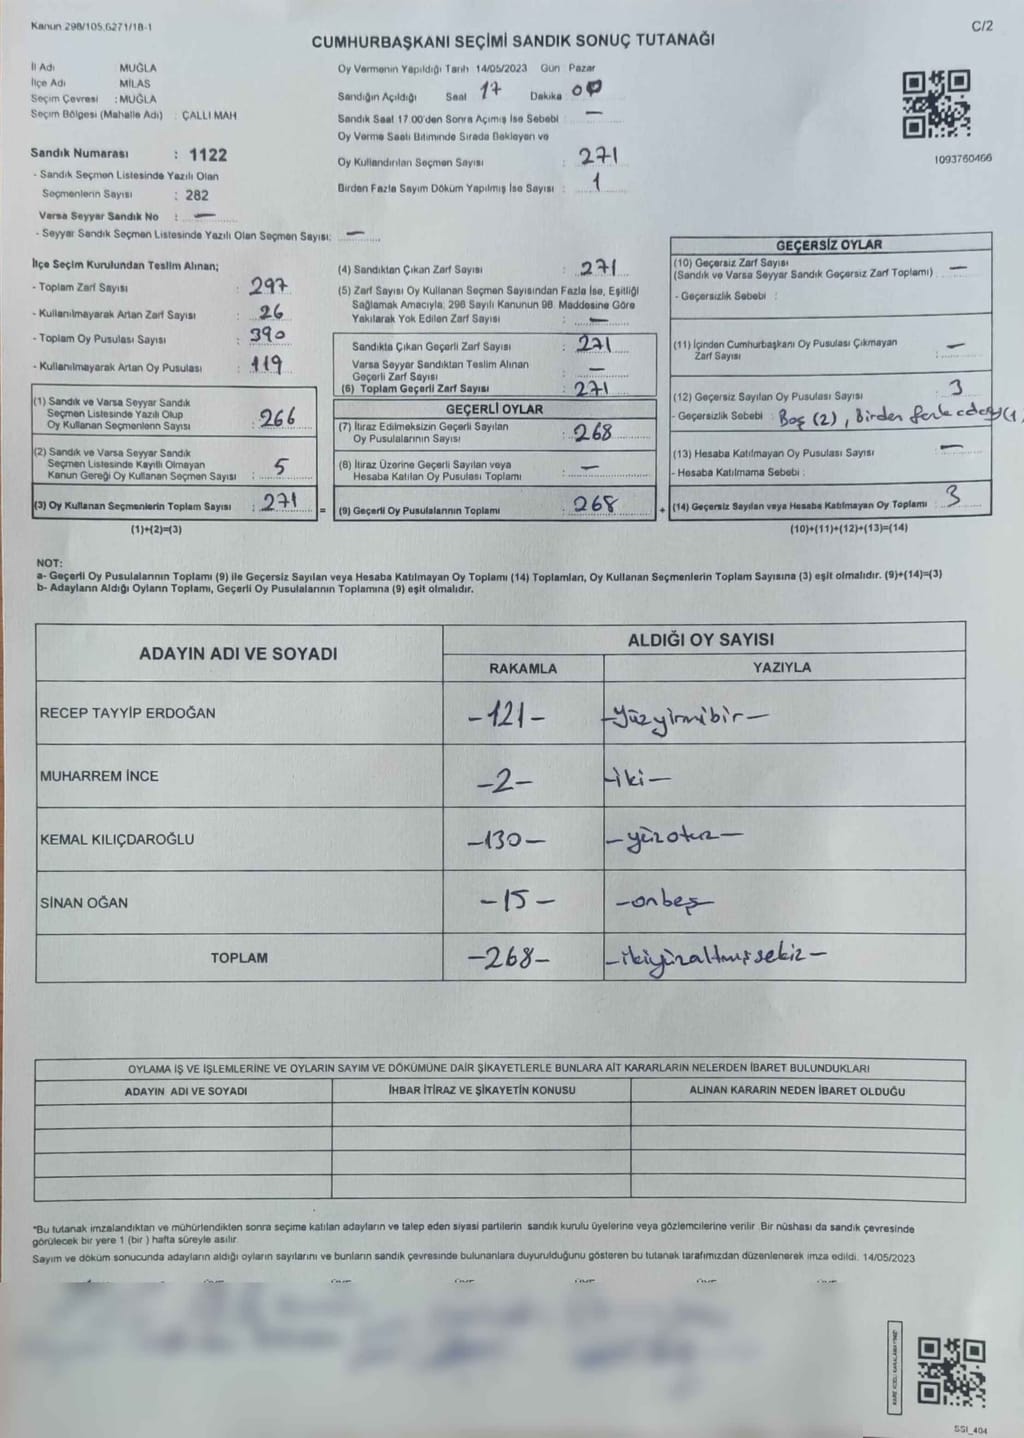 Kanun 298/105,6271/18-1
C/2
CUMHURBAŞKANI SEÇİMİ SANDIK SONUÇ TUTANAĞI
İl Adı : MUĞLA
İlçe Adı : MİLAS
Seçim Çevresi : MUĞLA
Seçim Bölgesi (Mahalle Adı) : ÇALLI MAH
Sandık Numarası : 1122
- Sandık Seçmen Listesinde Yazılı Olan
Seçmenlerin Sayısı : 282
Varsa Seyyar Sandık No : —
- Seyyar Sandık Seçmen Listesinde Yazılı Olan Seçmen Sayısı: —
Oy Vermenin Yapıldığı Tarih 14/05/2023 Gün Pazar
Sandığın Açıldığı Saat 17 Dakika 00
Sandık Saat 17.00'den Sonra Açımış İse Sebebi —
Oy Verme Saati Bitiminde Sırada Bekleyen ve
Oy Kullandırılan Seçmen Sayısı : 271
Birden Fazla Sayım Döküm Yapılmış İse Sayısı : 1
1093760466
İlçe Seçim Kurulundan Teslim Alınan;
- Toplam Zarf Sayısı : 297
- Kullanılmayarak Artan Zarf Sayısı : 26
- Toplam Oy Pusulası Sayısı : 390
- Kullanılmayarak Artan Oy Pusulası : 119
(1) Sandık ve Varsa Seyyar Sandık
Seçmen Listesinde Yazılı Olup
Oy Kullanan Seçmenlerin Sayısı : 266
(2) Sandık ve Varsa Seyyar Sandık
Seçmen Listesinde Kayıtlı Olmayan
Kanun Gereği Oy Kullanan Seçmen Sayısı : 5
(3) Oy Kullanan Seçmenlerin Toplam Sayısı : 271 =
(1)+(2)=(3)
(4) Sandıktan Çıkan Zarf Sayısı : 271
(5) Zarf Sayısı Oy Kullanan Seçmen Sayısından Fazla İse, Eşitliği
Sağlamak Amacıyla; 298 Sayılı Kanunun 98. Maddesine Göre
Yakılarak Yok Edilen Zarf Sayısı : —
Sandıkta Çıkan Geçerli Zarf Sayısı : 271
Varsa Seyyar Sandıktan Teslim Alınan
Geçerli Zarf Sayısı : —
(6) Toplam Geçerli Zarf Sayısı : 271
GEÇERLİ OYLAR
(7) İtiraz Edilmeksizin Geçerli Sayılan
Oy Pusulalarının Sayısı : 268
(8) İtiraz Üzerine Geçerli Sayılan veya
Hesaba Katılan Oy Pusulası Toplamı : —
(9) Geçerli Oy Pusulalarının Toplamı : 268 +
GEÇERSİZ OYLAR
(10) Geçersiz Zarf Sayısı
(Sandık ve Varsa Seyyar Sandık Geçersiz Zarf Toplamı) : —
- Geçersizlik Sebebi :
(11) İçinden Cumhurbaşkanı Oy Pusulası Çıkmayan
Zarf Sayısı : —
(12) Geçersiz Sayılan Oy Pusulası Sayısı : 3
- Geçersizlik Sebebi : Boş (2), Birden fazla aday (1)
(13) Hesaba Katılmayan Oy Pusulası Sayısı : —
- Hesaba Katılmama Sebebi :
(14) Geçersiz Sayılan veya Hesaba Katılmayan Oy Toplamı : 3
(10)+(11)+(12)+(13)=(14)
NOT:
a- Geçerli Oy Pusulalarının Toplamı (9) ile Geçersiz Sayılan veya Hesaba Katılmayan Oy Toplamı (14) Toplamları, Oy Kullanan Seçmenlerin Toplam Sayısına (3) eşit olmalıdır. (9)+(14)=(3)
b- Adayların Aldığı Oyların Toplamı, Geçerli Oy Pusulalarının Toplamına (9) eşit olmalıdır.
ADAYIN ADI VE SOYADI
ALDIĞI OY SAYISI
RAKAMLA YAZIYLA
RECEP TAYYİP ERDOĞAN -121- -yüzyirmibir-
MUHARREM İNCE -2- -iki-
KEMAL KILIÇDAROĞLU -130- -yüzotuz-
SİNAN OĞAN -15- -onbeş-
TOPLAM -268- -ikiyüzaltmışsekiz-
OYLAMA İŞ VE İŞLEMLERİNE VE OYLARIN SAYIM VE DÖKÜMÜNE DAİR ŞİKAYETLERLE BUNLARA AİT KARARLARIN NELERDEN İBARET BULUNDUKLARI
ADAYIN ADI VE SOYADI İHBAR İTİRAZ VE ŞİKAYETİN KONUSU ALINAN KARARIN NEDEN İBARET OLDUĞU
*Bu tutanak imzalandıktan ve mühürlendikten sonra seçime katılan adayların ve talep eden siyasi partilerin sandık kurulu üyelerine veya gözlemcilerine verilir. Bir nüshası da sandık çevresinde
görülecek bir yere 1 (bir ) hafta süreyle asılır.
Sayım ve döküm sonucunda adayların aldığı oyların sayılarını ve bunların sandık çevresinde bulunanlara duyurulduğunu gösteren bu tutanak tarafımızdan düzenlenerek imza edildi. 14/05/2023
SSI_404